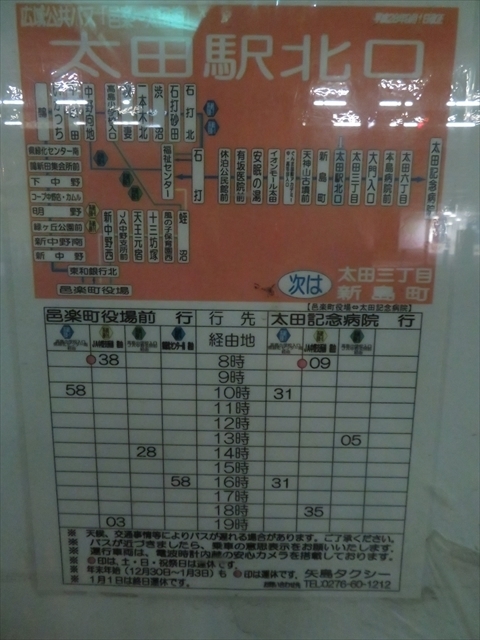 太田駅北口
石打北
石打砂田
渋沼
一本木北
中野団地
石打
福祉センター
休泊公民館前
有坂医院前
安眠の湯
イオンモール太田
天神山古墳前
新島町
太田駅北口
大門入口
本島病院前
太田六丁目
太田記念病院
下中野
明野
緑ヶ丘公園前
新中野南
新中野
新中野西
JA中野支所前
天王元宿
十三坊塚
蛭沼
東和銀行北
邑楽町役場
次は
太田三丁目
新島町
【邑楽町役場⇔太田記念病院】
邑楽町役場前 行
行先
太田記念病院 行
経由地
38 8時 09
9時
58 10時 31
11時
12時
13時 05
28 14時
15時
58 16時 31
17時
18時 35
03 19時
※ 天候、交通事情等によりバスが遅れる場合があります。ご了承ください。
※ バスが近づきましたら、乗車の意思表示をお願いいたします。
※ 運行車両は、電波時計内蔵の安心カメラを搭載しております。
※ 印は、土・日・祝祭日は運休です。
※ 年末年始(12月30日~1月3日)も 印は運休です。
矢島タクシー
※ 1月1日は終日運休です。
TEL.0276-60-1212